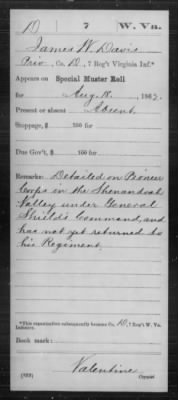 D 7 W. Va.
James W. Davis
Priv., Co. D, 7 Reg't Virginia Inf.*
Appears on Special Muster Roll
for Aug. 18, 1862.
Present or absent Absent
Stoppage, $ 100 for
Due Gov't, $ 100 for
Remarks: Detailed on Pioneer
Corps in the Shenandoah
Valley under General
Shield's Command, and
has not yet returned to
his Regiment.
*This organization subsequently became Co. D, 7 Reg't W. Va.
Infantry.
Book mark:
Valentine
Copyist.